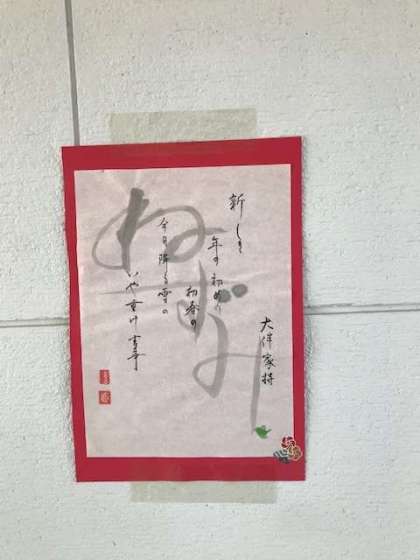 ねずみ
大伴家持
新しき
年の初めの
初春の
今日降る雪の
いや重け吉事